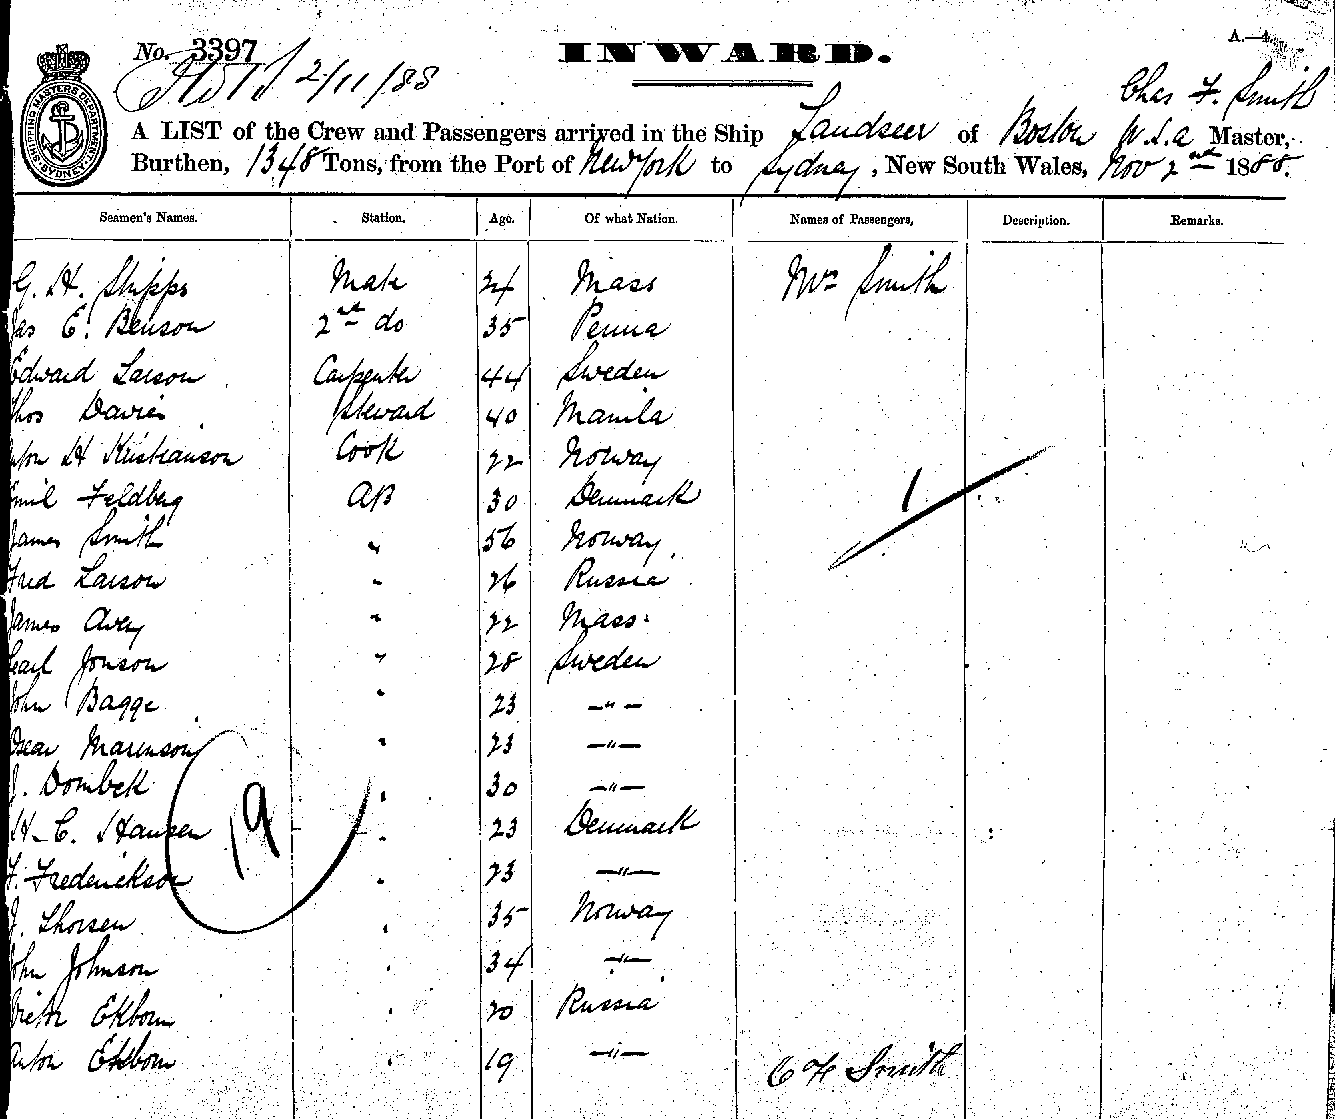 No. 3397
INWARD.
A.—
2/11/88
Chas F. Smith
SHIPPING MASTERS DEPARTMENT SYDNEY
A LIST of the Crew and Passengers arrived in the Ship Landseer of Boston U.S.A Master,
Burthen, 1348 Tons, from the Port of New York to Sydney, New South Wales, Nov 2nd 1888.
Seamen's Names. Station. Age. Of what Nation. Names of Passengers, Description. Remarks.
G. H. Shipps Mate 24 Mass Mrs Smith
Jas E. Benson 2nd do 35 Penna
Edward Larson Carpenter 44 Sweden
Thos Davies Steward 40 Manila
Anton H Kristianson Cook 22 Norway
Emil Feldberg AB 30 Denmark
James Smith " 56 Norway
1
Fred Larson " 26 Russia
James Avey " 22 Mass.
Carl Jonson " 28 Sweden
John Bagge " 23 —"—
Oscar Marenson " 23 —"—
J. Dombek " 30 —"—
19
H. C. Hansen " 23 Denmark
F. Frederickson " 23 —"—
J. Thorsen " 35 Norway
John Johnson " 34 —"—
Victor Ekbom " 20 Russia
Anton Ekbom " 19 —"—
C F Smith